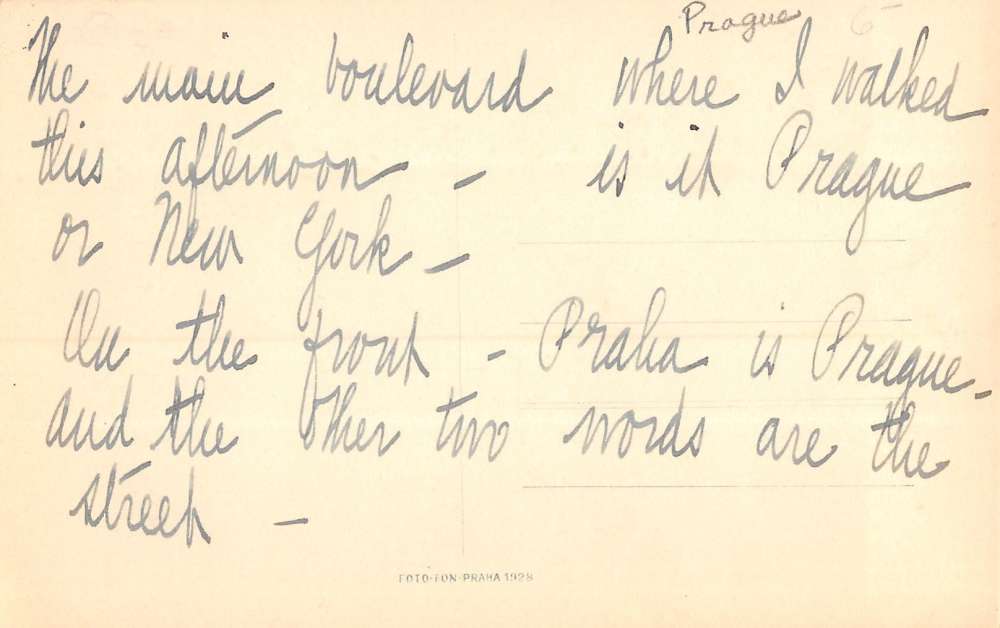 Prague
The main boulevard where I walked
this afternoon – is it Prague
or New York –
On the front – Praha is Prague –
and the other two words are the
street –
FOTO-FON-PRAHA 1928